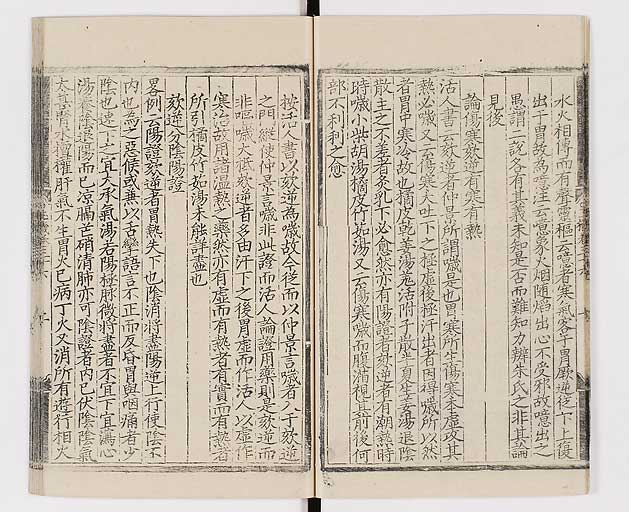 水火相傳而有聲靈樞云噫者寒氣客于胃厥逆從下上復
出于胃故為噫注云噫象火烟隨焰出心不受邪故噫出之
愚謂二說各有其義未知是否而難知力辨朱氏之非其論
見後
論傷寒欬逆有寒有熱
活人書云欬逆者仲景所謂噦是也胃寒所生傷寒本虛攻其
熱必噦又云傷寒大吐下之極虛復極汗出者因得噦所以然
者胃中寒冷故也橘皮乾姜湯羌活附子散半夏生姜湯退陰
散主之不差者灸乳下必愈然亦有陽證欬逆者有潮熱時
時噦小柴胡湯橘皮竹茹湯又云傷寒噦而腹滿視其前後何
部不利利之愈
按活人書以欬逆為噦故今從而以仲景言噦者入于欬逆
之門縱使仲景言噦非此證而活人論證用藥則是欬逆而
非嘔噦大抵欬逆者多由汗下之後胃虛而作活人以虛作
寒治故用諸溫熱之藥然亦有虛而有熱者有實而有熱者
所引橘皮竹茹湯未能詳盡也
欬逆分陰陽證
畧例云陽證欬逆者胃熱失下也陰消將盡陽逆上行使陰不
內也為之惡候或兼以舌攣語言不正而反昏冒與咽痛者少
陰也速下之宜大承氣湯若陽極脉微將盡者不宜下宜瀉心
湯養陰退陽而已凉膈芒硝清肺亦可陰證者內已伏陰陰氣
太甚腎水擅權肝氣不生胃火已病丁火又消所有遊行相火